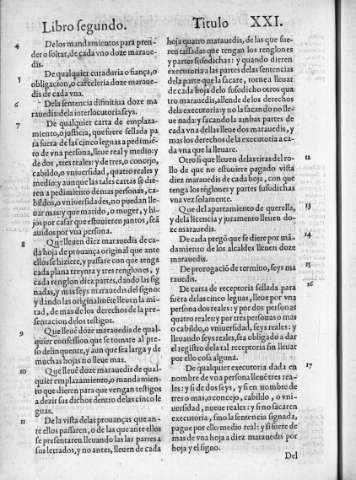 Libro segundo.
Titulo XXI.
4
De los mandamientos para pren-
der o soltar, de cada vno doze maraue
dis.
5
De qualquier curaduria o fiança, o
obligacion, o carceleria doze maraue
dis de vna.
6
De la sentencia difinitiua doze ma
rauedis: de la interlocutoria seys.
7
De qualquier carta de emplaza-
miento, o justicia, que fuere sellada pa
ra fuera de las cinco leguas a pedimie
to de vna persona, lleue real y medio: y
de dos, tres reales: y de tres, o concejo,
cabildo, o vniuersidad, quatro reales y
medio: y aun que las tales cartas se die-
ren a pedimiento de mas personas, ca-
bildos, o vniuersidades, no puedan lle-
uar mas: y que marido, o muger, y hi-
jos por casar que estuuieren juntos, sea
auidos por vna persona.
8
Que lleuen diez marauedis de ca-
da hoja de prouança original que ante
ellos se hiziere, y passare con que tenga
cada plana treynta y tres renglones, y
cada renglon diez partes, dando las sig
nadas, y mas seys marauedis del signo:
y dando las originales lleuen la mi-
tad, de mas de los derechos de la pre-
sentacion de los testigos.
9
Que lleue doze marauedis de qual-
quier confession que se tomare al pre-
so delinquente, y aun que sea larga y de
muchas hojas no lleue mas.
10
Que lleue doze marauedis de qual-
quier emplazamiento, o mandamien-
to que dieren para que vengan testigos
a dezir sus dichos dentro de las cinco le
guas.
11
De la vista de las prouanças que an-
te ellos passaren, o de las que ante ellos
se presentaren lleuando las las partes a
sus letrados, y no antes, lleuen de cada
hoja quatro marauedis, de las que fue-
ren tassadas que tengan los renglones
y partes susodichas: y quando dieren
executoria a las partes de las sentencias
de la parte que la sacare, torne a lleuar
de cada hoja de lo susodicho otros qua
tro marauedis, allende de los derechos
de la executoria: y no la sacando no lle-
ue nada: y sacando la ambas partes de
cada vna dellas lleue dos marauedis, y
mas los derechos de la executoria a ca-
da vna que la lleuare.
12
Otrosi que lleuen de las tiras del ro-
llo de que no estuuiere pagado vista
diez marauedis de cada hoja, con que
tenga los reglones y partes susodichas
vna vez solamente.
13
Que del apartamiento de querella,
y de la licencia y juramento lleuen do-
ze marauedis.
14
De cada pregõ que se diere por mã-
damiento de los alcaldes lleuen doze
marauedis.
15
De prorogació de termino, seys ma
rauedis.
16
De carta de receptoria sellada para
fuera de las cinco leguas, lleue por vna
persona dos reales: y por dos personas
quatro reales: y por tres personas o mas
o cabildo, o vniuersidad, seys reales: y
lleuando seys reales, sea obligado a dar
el registro de la tal receptoria sin lleuar
por ello cosa alguna.
17
De qualquier executoria dada en
nombre de vna persona lleue tres rea-
les: y si de dos seys, y si en nombre de
tres o mas, o concejo, cabildo, o vni-
uersidad, nueue reales: y si no sacaren
executoria, sino la sentencia signada,
pague por ello medio real: y si siere de
mas de vna hoja a diez marauedis por
hoja y el signo.
Del